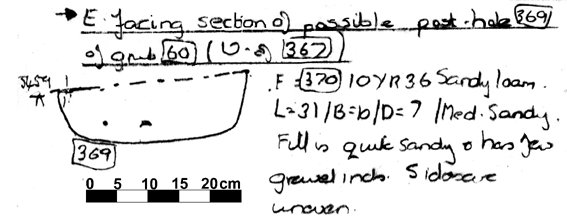 → E. facing section of possible post-hole 369
of grub 60 (U-S 367)
F = 370 10YR 36 Sandy loam.
L=31/B=10/D=7 /Med. Sandy.
Fill is quite sandy & has few
gravel incls. Sides are
uneven.
369
0 5 10 15 20cm